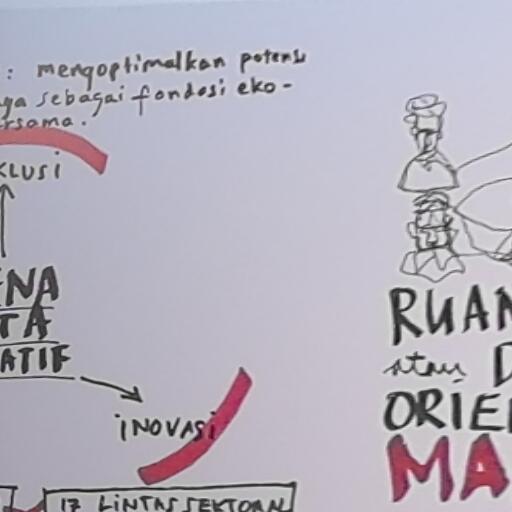 : mengoptimalkan potensi
ya sebagai fondasi eko-
ersama.
KLUSI
ENA
TA
ATIF
INOVASI
17 LINTAS SEKTORAL
RUAN
atau D
ORIE
MA